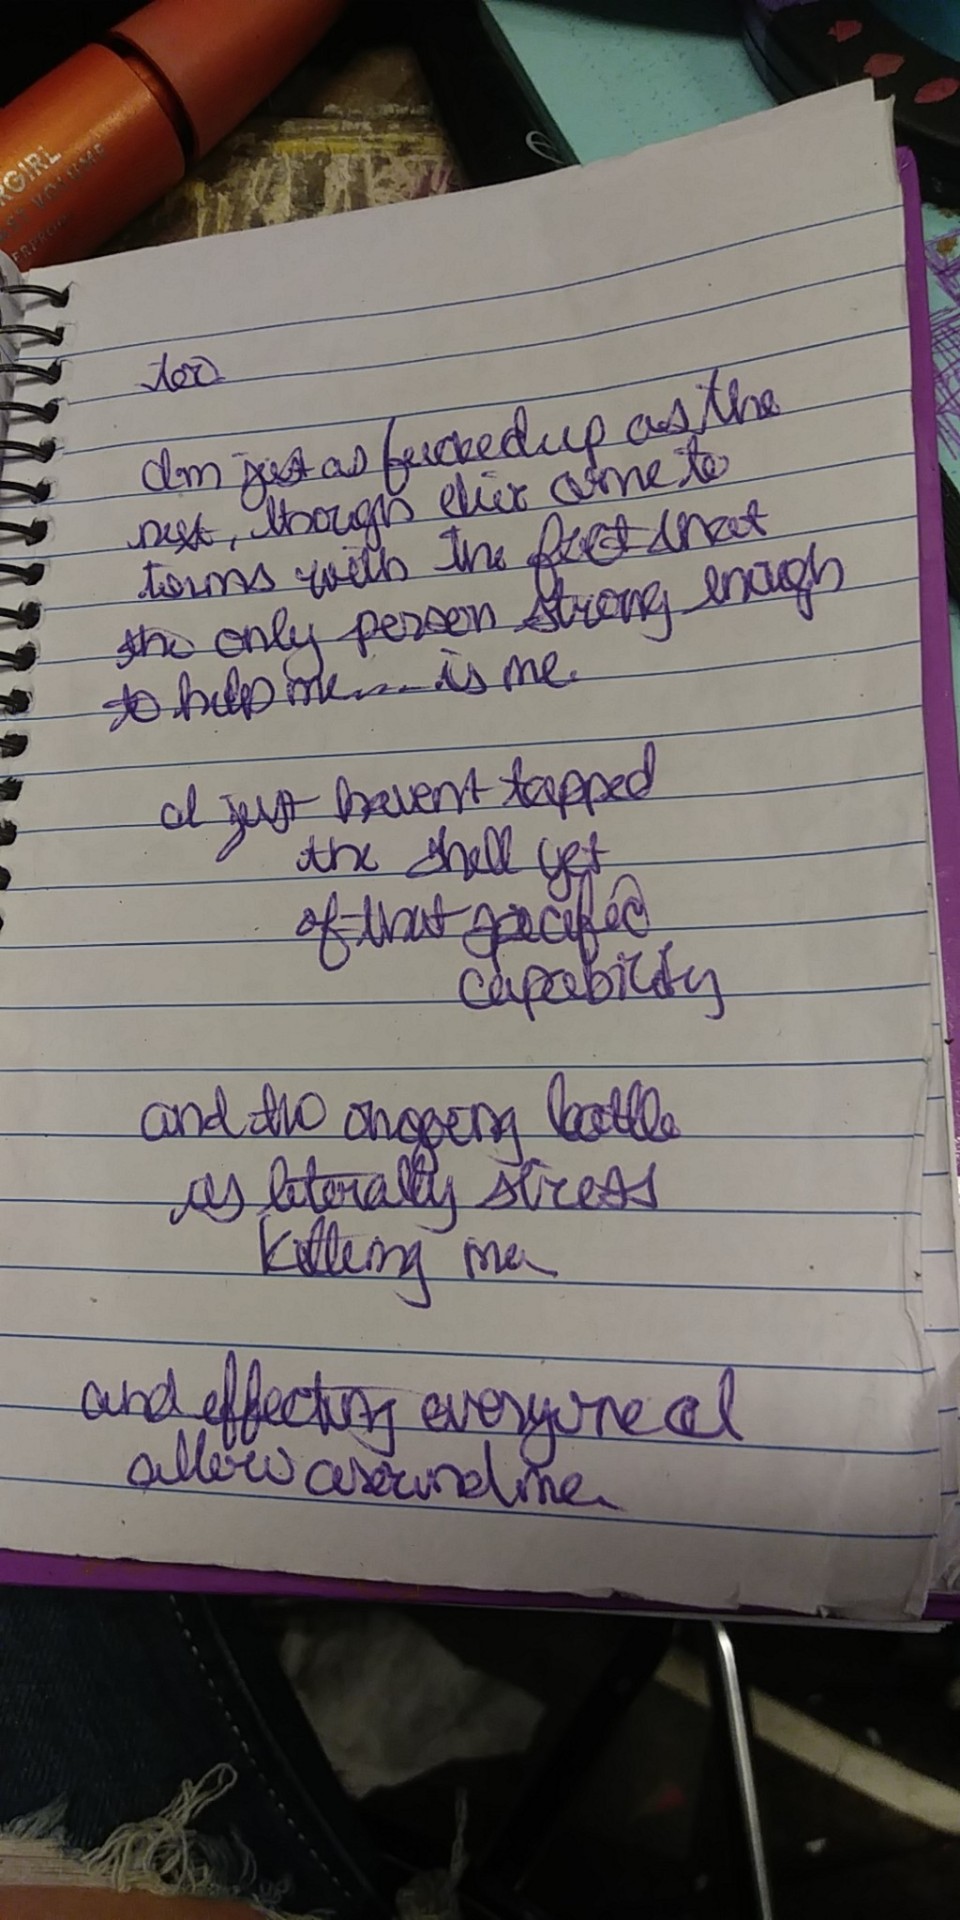 RGIRL
VOLUME
ERPROOF
too
I'm just as fucked up as the
rest, though I've come to
terms with the fact that
the only person strong enough
to help me.... is me.
I just havent tapped
the shell yet
of that specified
capability
and the ongoing battle
is literally stress
killing me
and effecting everyone I
allow around me